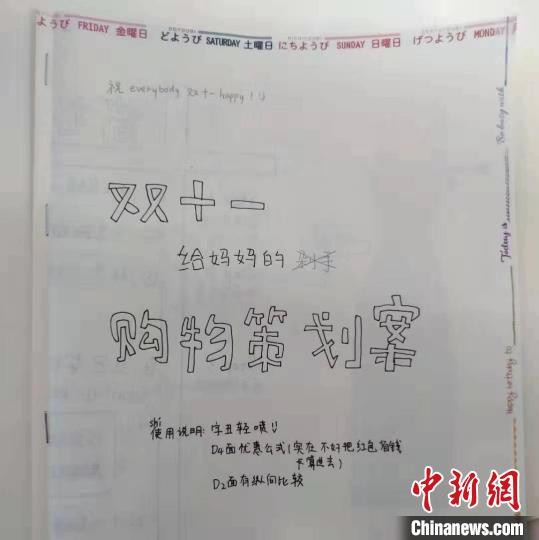 ようび FRIDAY 金曜日 どようび SATURDAY 土曜日 にちようび SUNDAY 日曜日 げつようび MONDAY
祝 everybody 双十一 happy!
双十一
给妈妈的 剁手
购物策划案
shi
使用说明: 字丑轻喷
D4面优惠公式(实在不好把红包省钱
卡算进去)
D2面有纵向比较
Be busy with
Today is
Happy writing to
中新网
Chinanews.com